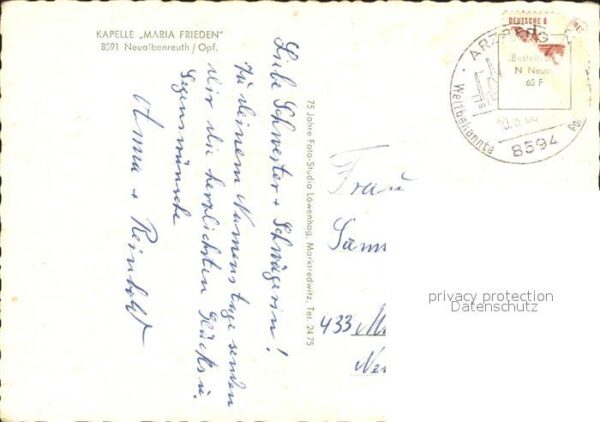 KAPELLE „MARIA FRIEDEN"
8591 Neualbenreuth / Opf.
Liebe Schwester + Schwägerin!
Zu deinem Namenstage senden
wir die herzlichsten Glücks u.
Segenswünsche
Anna + Reinhold
75 Jahre Foto-Studio Löwenhag, Marktredwitz, Tel. 2475
DEUTSCHE B
ARZBERG
Weltbekannte
8594
"Bestell
N Neua
60 F
Frau
433
privacy protection
Datenschutz